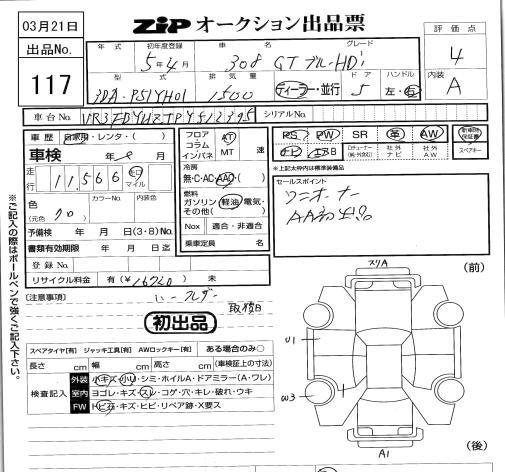 03月21日
ZIP オークション出品票
出品No.
117
評価点
4
内装
A
年式
初年度登録
車名
グレード
5年4月
308
GT ブルーHDi
型式
排気量
ドア
ハンドル
3DA-P51YH01
1500
ディーラー・並行
5
左・右
車台No.
シリアルNo.
車歴
自家用・レンタ・( )
車検
年 月
走行
11,566
km
マイル
色
(元色
クロ
)
カラーNo.
内装色
予備検 年 月 日(3・8)No.
書類有効期限 年 月 日迄
登録No.
リサイクル料金 有(¥ 16720 ) 未
フロア
コラム
インパネ
AT
MT
速
冷房
無・C・AC・AAC
燃料
ガソリン・軽油・電気・
その他( )
Nox
適合・非適合
乗車定員
名
PS
PW
SR
革
AW
新車時保証書
ナビ
エアB
社外ナビ
社外AW
スペアキー
※上記太枠内は標準装備品
セールスポイント
ワンオーナー
AA初出品
※ご記入の際はボールペンで強くご記入下さい。
(注意事項)
取説
初出品
スペアタイヤ[有] ジャッキ工具[有] AWロックキー[有] ある場合のみ○
長さ cm 幅 cm 高さ cm (車検証上の寸法)
検査記入
外装 小キズ・小U・シミ・ホイルA・ドアミラー(A・ワレ)
室内 ヨゴレ・キズ・スレ・コゲ・穴・キレ・破れ・ウキ
FW トビ石・キズ・ヒビ・リペア跡・X要ス
スリA
(前)
U1
W3
A1
(後)